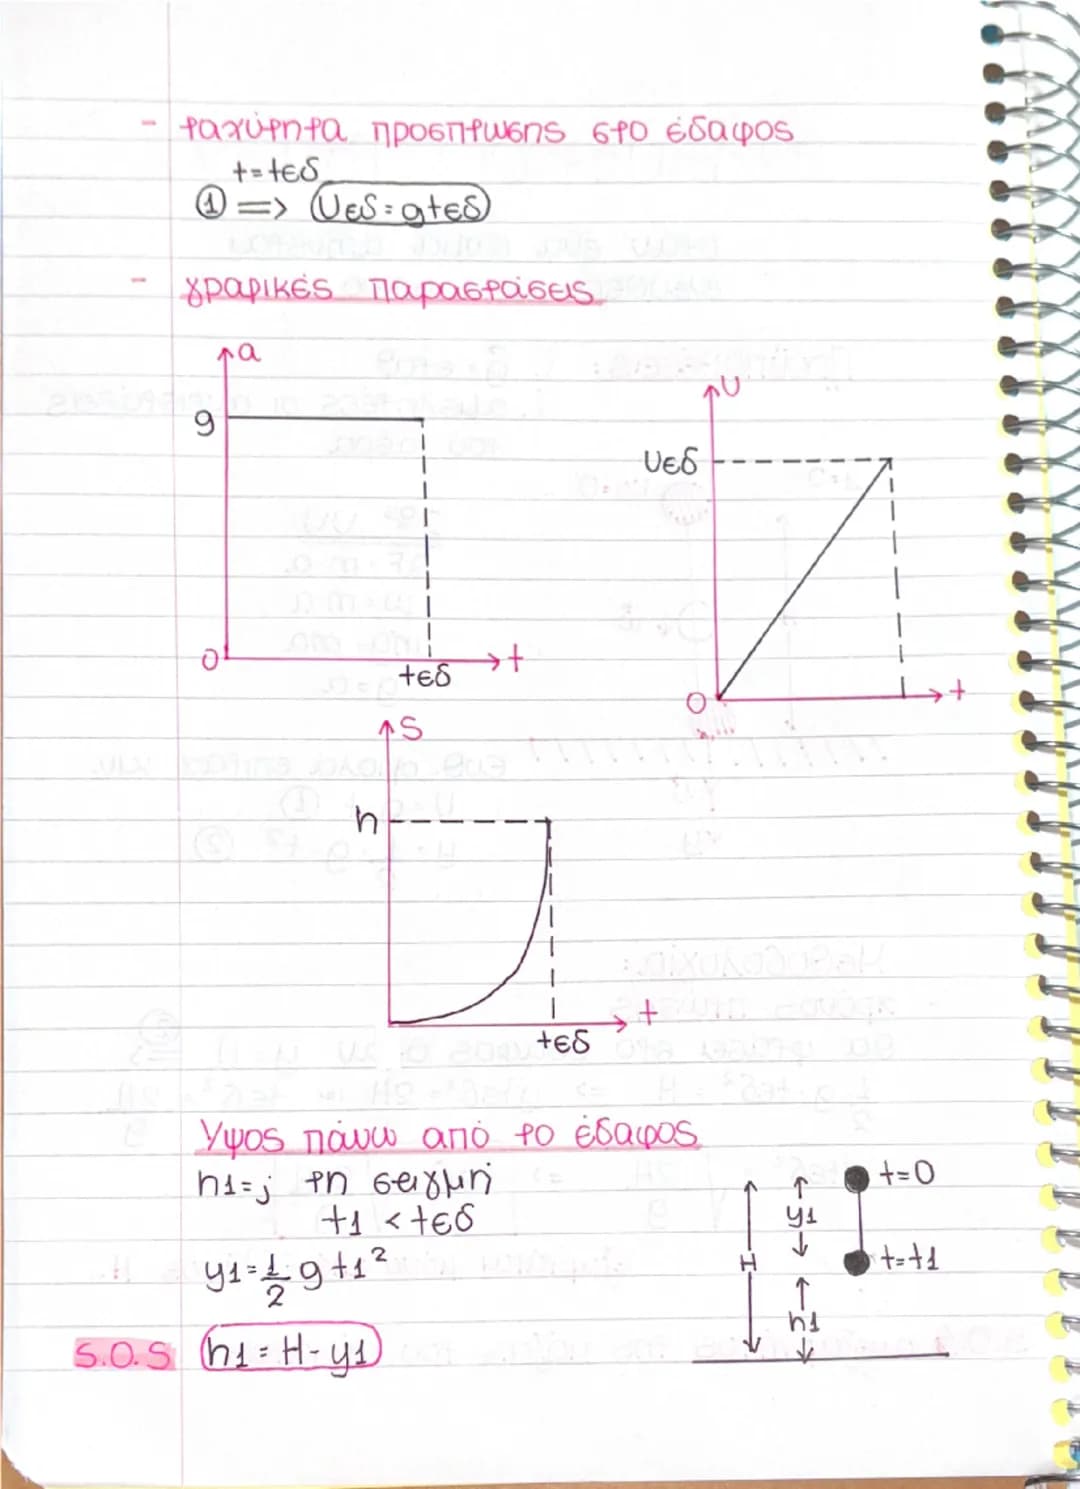 - ταχύτητα πρόσπτωσης στο έδαφος
t=tεδ
① => Uεδ=gtεδ
- γραφικές παραστάσεις
a
g
0
t
tεδ
U
Uεδ
0
t
S
h
t
tεδ
Υψος πάνω από το έδαφος
h1=; τη στιγμή
t1 < tεδ
y1=1/2 gt1²
S.O.S h1=H-y1
t=0
y1
H
t=t1
h1